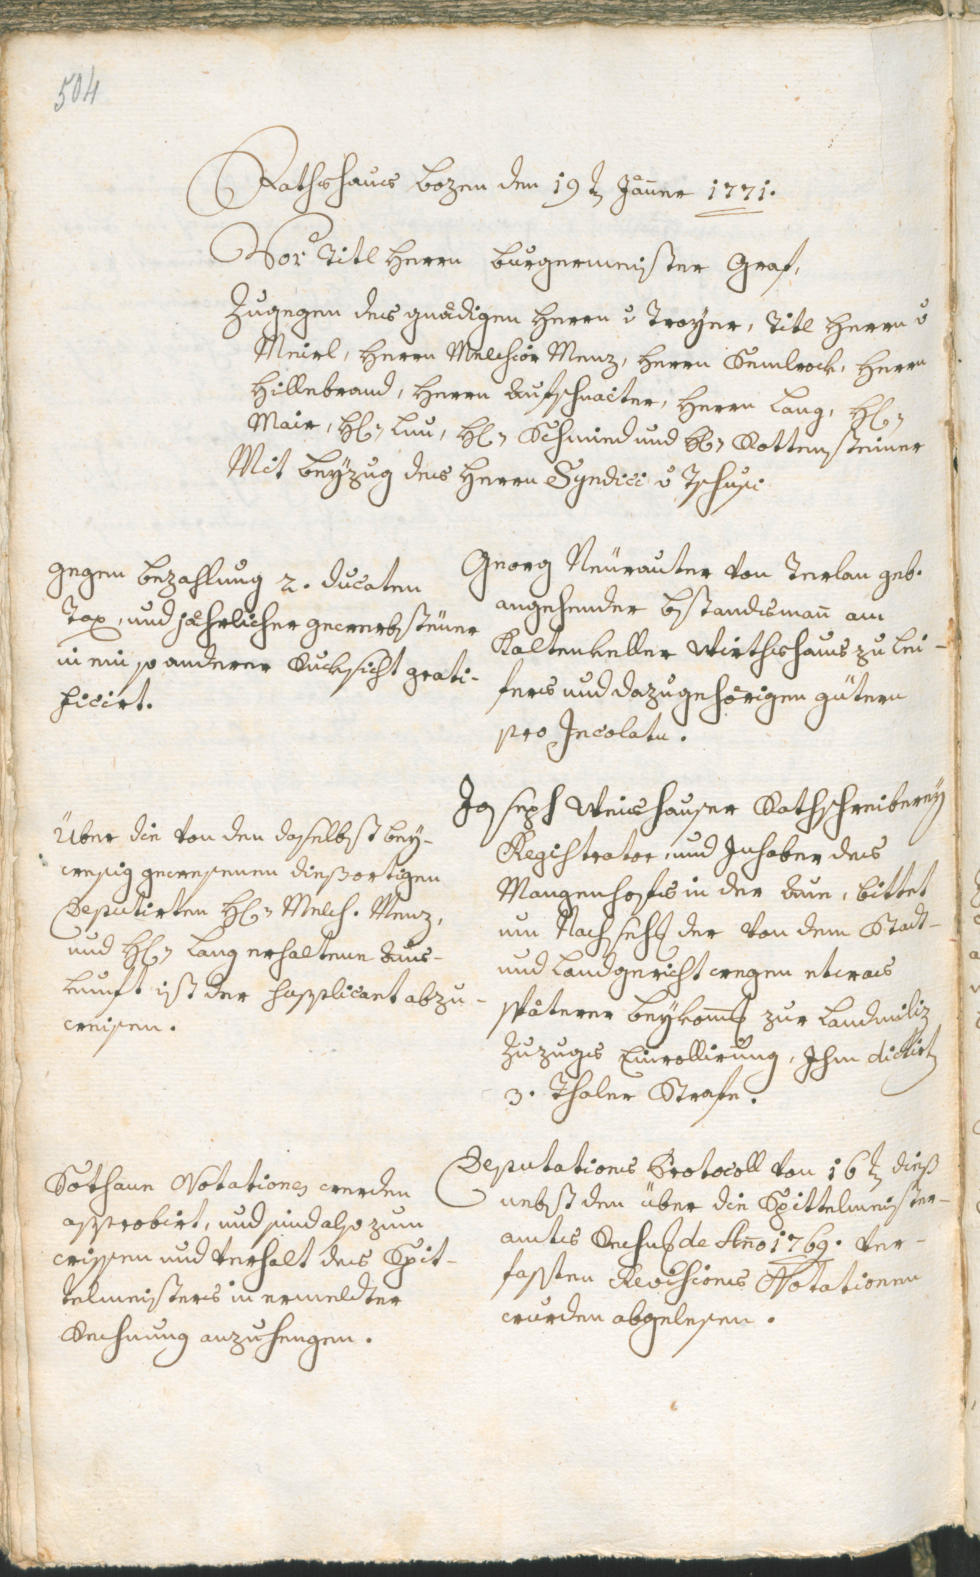 504
Rathshaus Bozen den 19t Jäner 1771.
Vor Titl Herrn Burgermeister Graf,
Zugegen des gnädigen Herrn v Troyer, Titl Herrn v
Meirl, Herrn Melchior Menz, Herrn Semlrock, Herrn
Hillebrand, Herrn Aufschnaiter, Herrn Lang, H:
Mair, H: Lun, H: Schmied und H: Rottensteiner
Mit Beÿzug des Herrn Syndici v Tschusi
Georg Neürauter von Terlan geb.
angehender Bstandsmañ am
Kaltenkeller Wirthshaus zu Lei-
fers und dazugehörigen gütern
pro Incolatu.
gegen Bezahlung 2. Ducaten
Tax, und jährlicher gewerbsteüer
in ein so anderer Rucksicht grati-
ficirt.
Joseph Weishauser Rathschreibereÿ
Registrator, und Inhaber des
Mangenhofs in der Aue, bittet
um Nachseh der von dem Stadt-
und Landgericht wegen etwas
späterer Beÿkom̄ zur Landmiliz
Zuzugs Enrollirung, Ihm dictirt
3. Thaler Strafe.
Über die von den daselbst beÿ-
wesig gewesenen diesortigen
Deputirten H: Melch. Menz,
und H: Lang erhaltene Aus-
kunft ist der Supplicant abzu-
weisen.
Deputations Protocoll von 16t dieß
nebst den über die Spittelmeister-
amts Rechnung de Año 1769. ver-
fassten Revisions Notationen
wurden abgelesen.
Sothane Notationes werden
approbirt, und sind also zum
wissen und verhalt des Spit-
telmeisters in ermeldter
Rechnung anzuhengen.